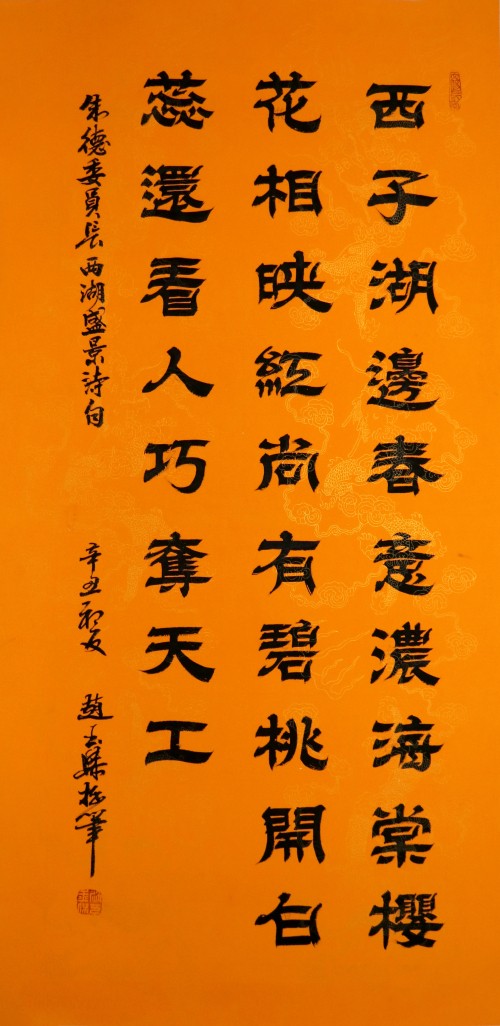 西子湖邊春意濃海棠櫻
花相映紅尚有碧桃開白
蕊還看人巧奪天工
朱德委員長西湖盛景詩句
辛丑初夏 趙